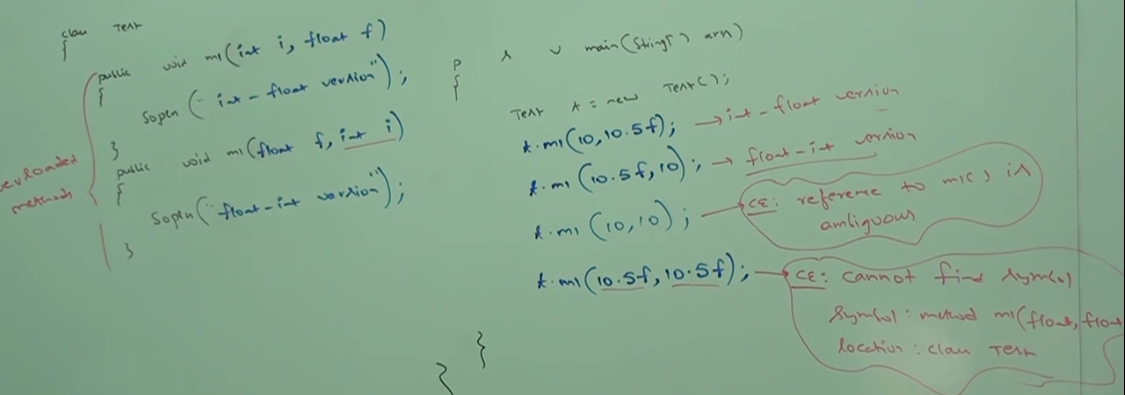 class Test
{
public void m1(int i, float f)
{
Sopln("int-float version");
}
public void m1(float f, int i)
{
Sopln("float-int version");
}
overloaded
methods
p s v main(String[] args)
{
Test t = new Test();
t.m1(10, 10.5f); → int-float version
t.m1(10.5f, 10); → float-int version
t.m1(10, 10); → CE: reference to m1() is
ambiguous
t.m1(10.5f, 10.5f); → CE: cannot find symbol
symbol: method m1(float, float
location: class Test
}
}